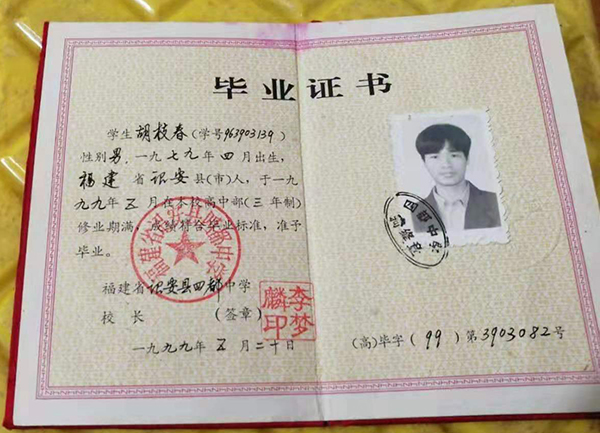 毕业证书
学生胡枝春(学号963903139)
性别男,一九七九年四月出生,
福建省诏安县(市)人,于一九
九九年五月在本校高中部(三年制)
修业期满,成绩符合毕业标准,准予
毕业。
福建省诏安县四都中学
校长(签章)
李梦麟印
一九九九年五月二十日
(高)毕字(99)第3903082号